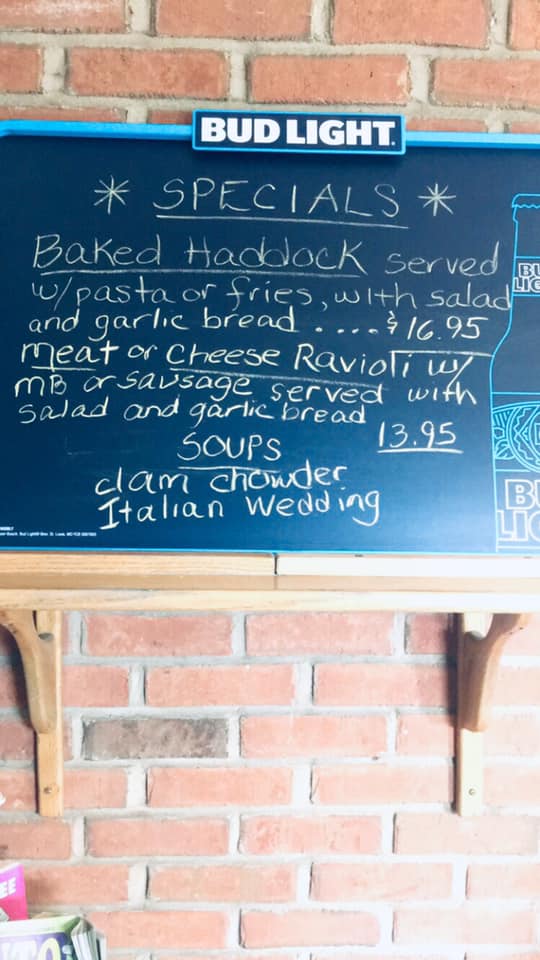 BUD LIGHT.
* SPECIALS *
Baked Haddock served
w/pasta or fries, with salad
and garlic bread ....$16.95
meat or Cheese Ravioli w/
MB or sausage served with
salad and garlic bread
13.95
SOUPS
clam chowder
Italian Wedding
BU
LIG
B
LIG
EE